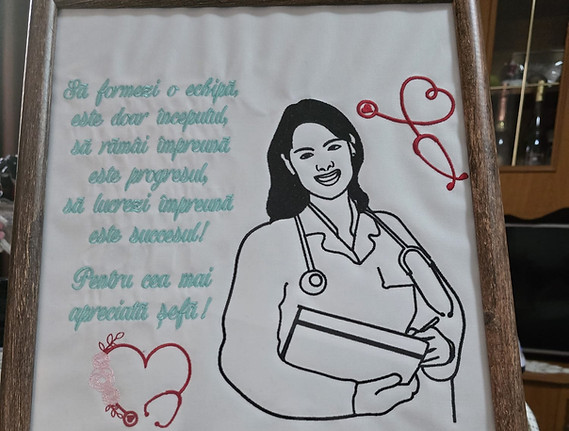 Să formezi o echipă,
este doar începutul,
să rămâi împreună
este progresul,
să lucrezi împreună
este succesul!
Pentru cea mai
apreciată șefă!